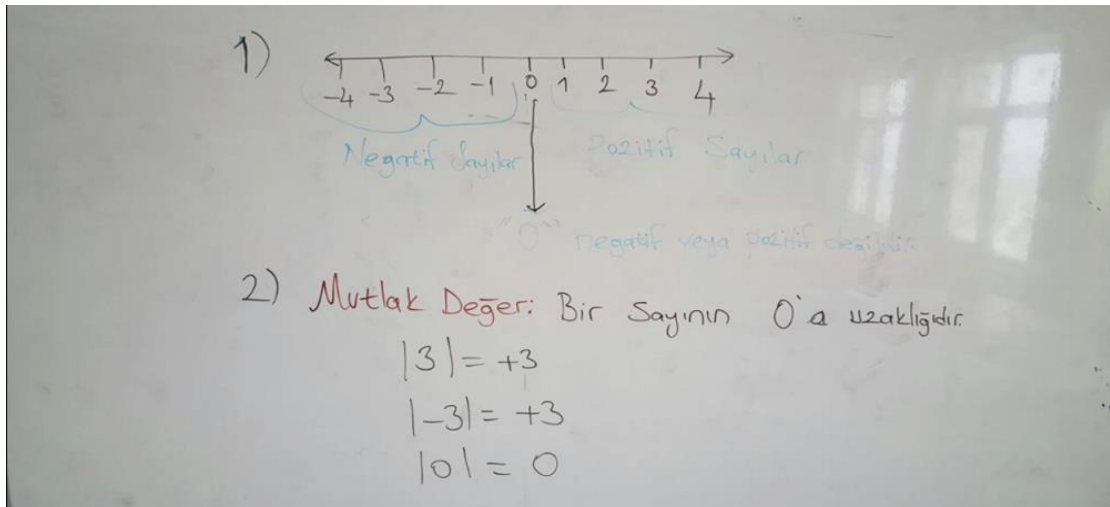 1)
-4 -3 -2 -1 0 1 2 3 4
Negatif Sayılar Pozitif Sayılar
"0" negatif veya pozitif değildir.
2) Mutlak Değer: Bir Sayının 0'a uzaklığıdır.
|3| = +3
|-3| = +3
|0| = 0